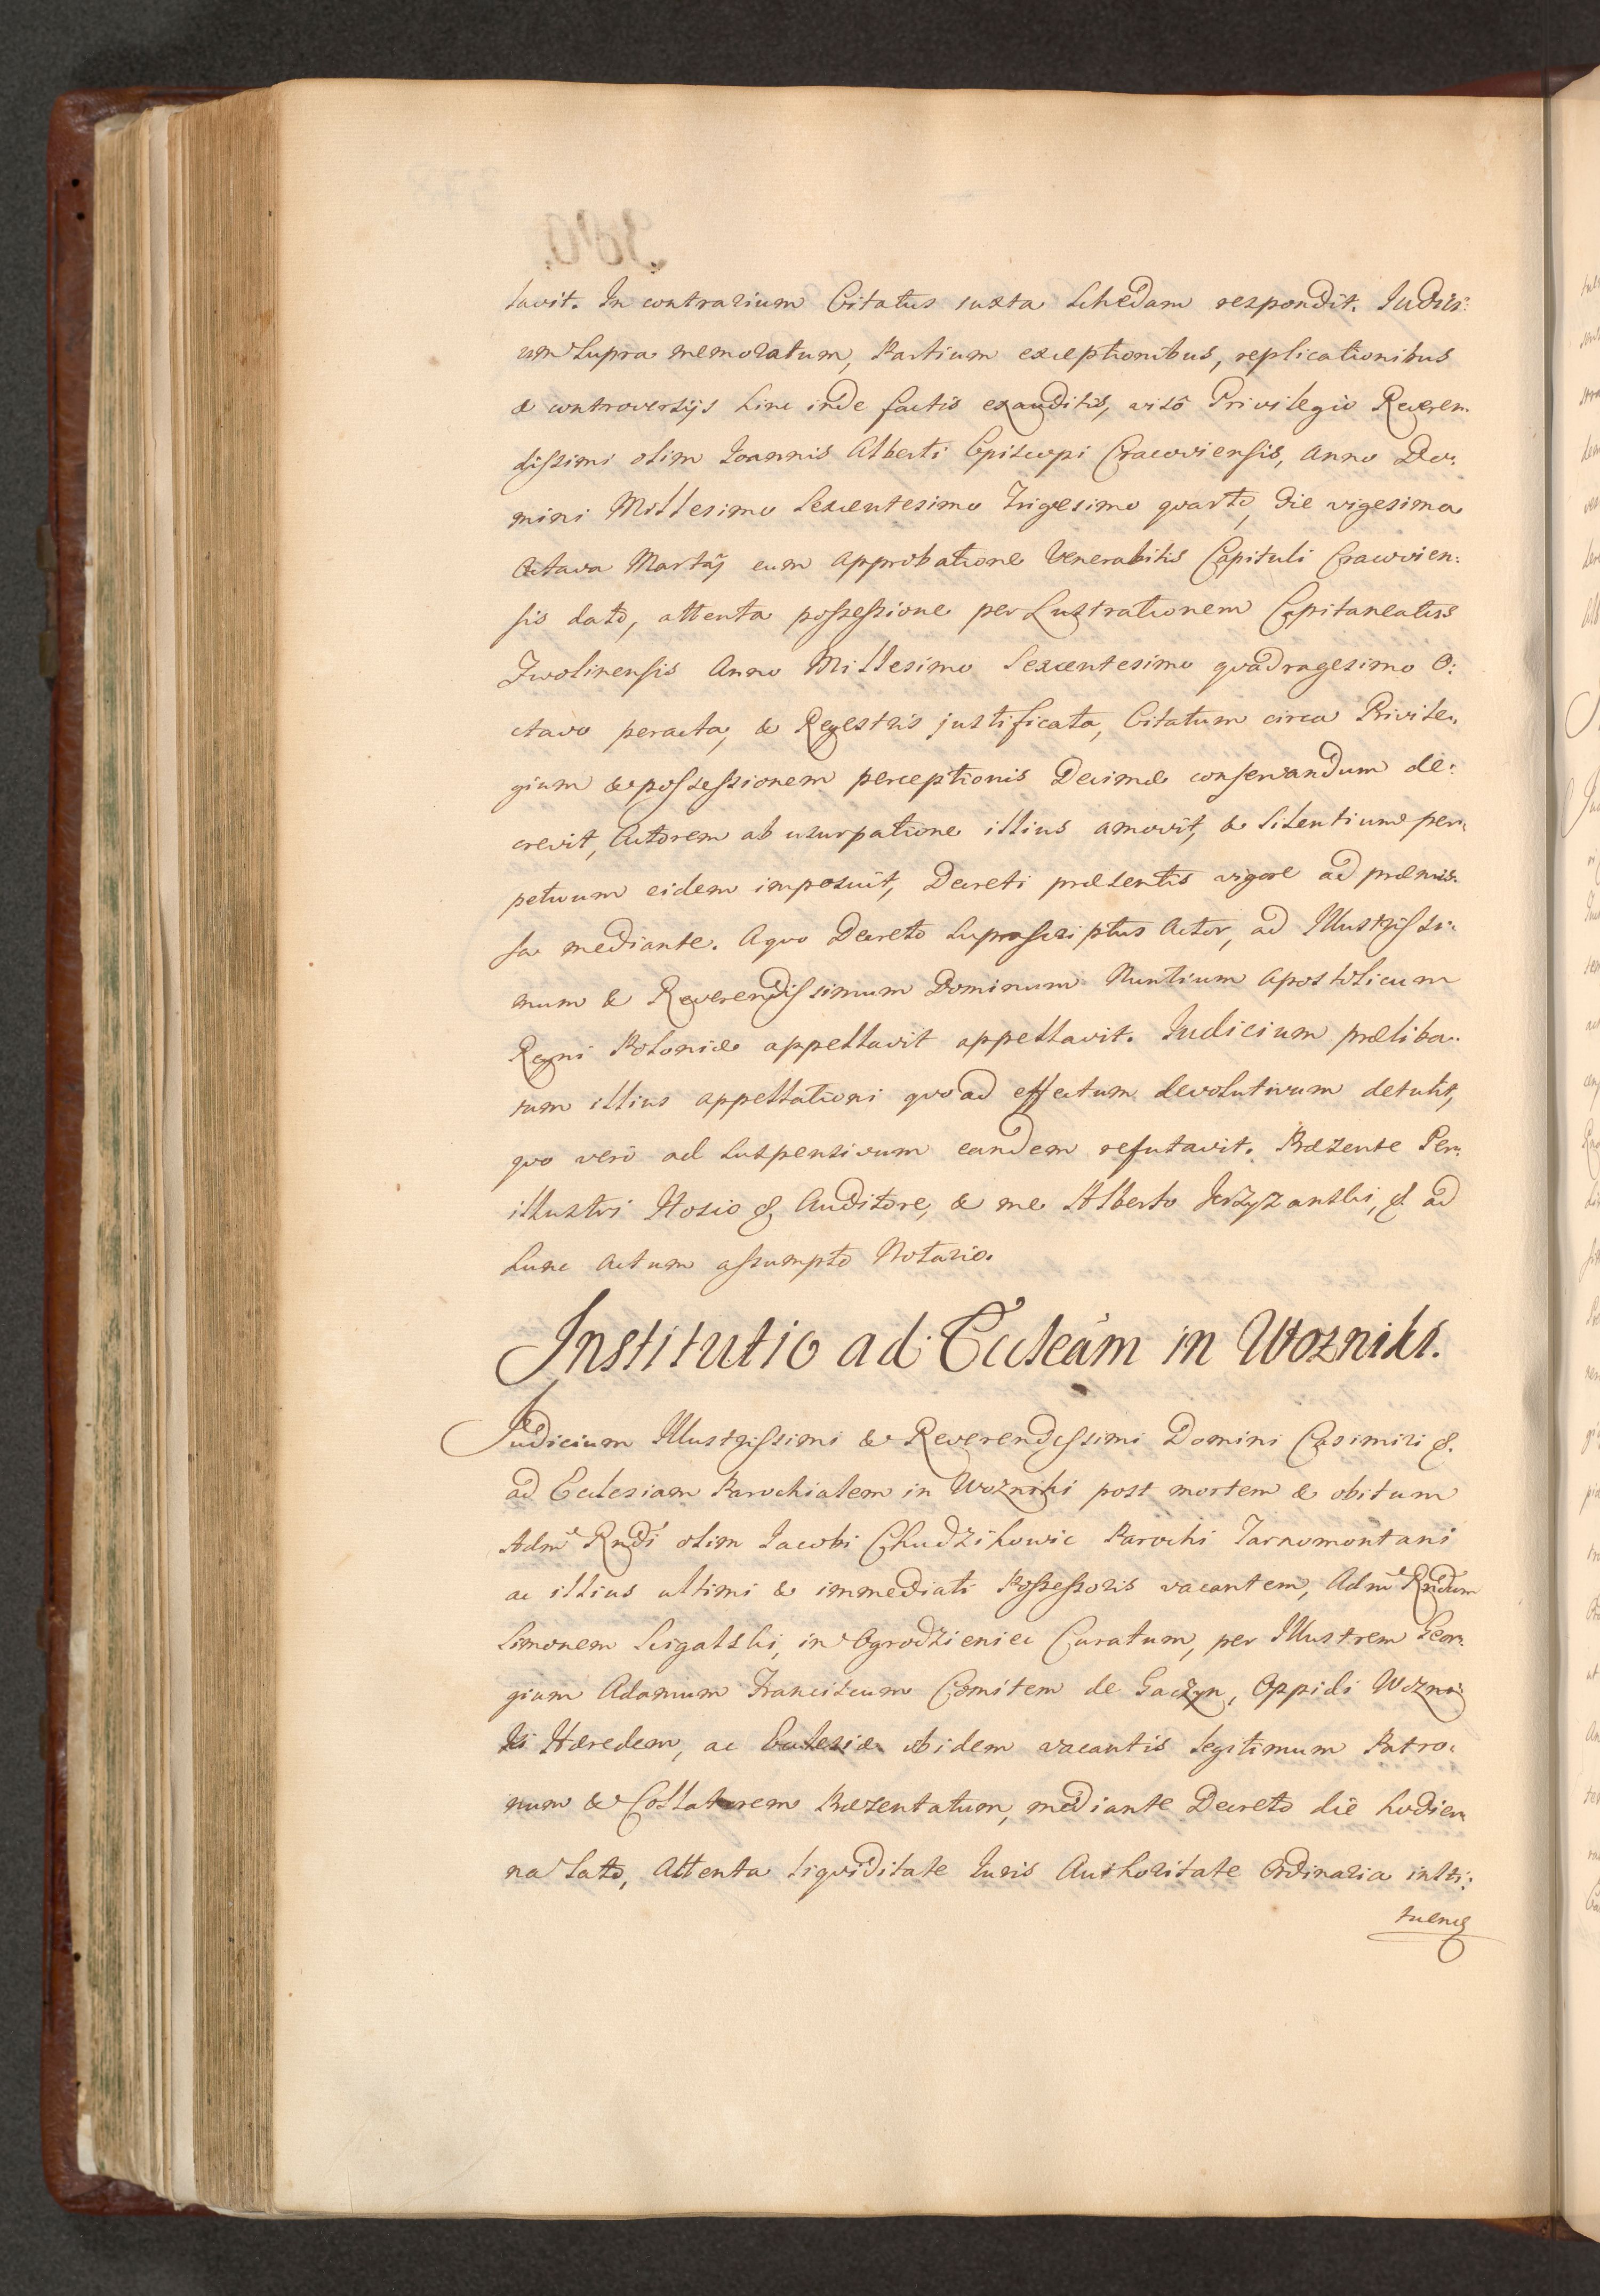 tavit. In contrarium Citatus iuxta Schedam respondit. Iudici:
um Supra memoratum, Partium exceptionibus, replicationibus
& controversijs hinc inde factis exauditis, visô Privilegio Reveren:
dissimi olim Ioannis Alberti Episcopi Cracoviensis, Anno Do:
mini Millesimo Sexcentesimo Trigesimo quarto, die vigesima
Octava Martij cum Approbatione Venerabilis Capituli Cracovien:
sis dato, attenta possessione per Lustrationem Capitaneatus
Zwolinensis Anno Millesimo Sexcentesimo quadragesimo O:
ctavo peracta, & Regestris justificata, Citatum circa Privile:
gium & possessionem perceptionis Decimæ conservandum de:
crevit, Actorem ab usurpatione illius amovit, & Silentium per:
petuum eidem imposuit, Decreti præsentis vigore ad præmis:
sa mediante. A quo Decreto Suprascriptus Actor, ad Illustrissi:
mum & Reverendissimum Dominum Nuntium Apostolicum
Regni Poloniæ appellavit appellavit. Iudicium præliba:
tum illius appellationi quoad effectum devolutivum detulit,
quo verò ad Suspensivum eandem refutavit. Præsente Per:
illustri Hosio &. Auditore, & me Alberto &. ad
hunc Actum assumpto Notario.
Institutio ad Eccleâm in Wozniki.
Iudicium Illustrissimi & Reverendissimi Domini Casimiri &.
ad Ecclesiam Parochialem in Wozniki post mortem & obitum
Adm Rndi olim Iacobi Chudzikowic Parochi Tarnomontani
ac illius ultimi & immediati Possessoris vacantem, Adm Rndum
Simonem Scigalski, in Ogrodzieniec Curatum, per Illustrem Geor:
gium Adamum Franciscum Comitem de Gaczyn, Oppidi Wozni:
ki Hæredem, ac Ecclesiæ ibidem vacantis legitimum Patro:
num & Collatorem Præsentatum, mediante Decreto die hodier:
na Lato, Attenta liquiditate Iuris Authoritate Ordinaria insti:
tuend